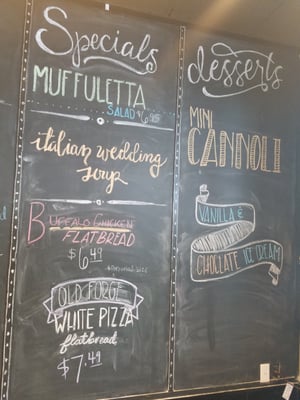 Specials
MUFFULETTA
SALAD $6.99
italian wedding
soup
BUFFALO CHICKEN
FLATBREAD
$6.49
OLD FORGE
WHITE PIZZA
flatbread
$7.49
desserts
MINI
CANNOLI
VANILLA &
CHOCLATE ICE CREAM